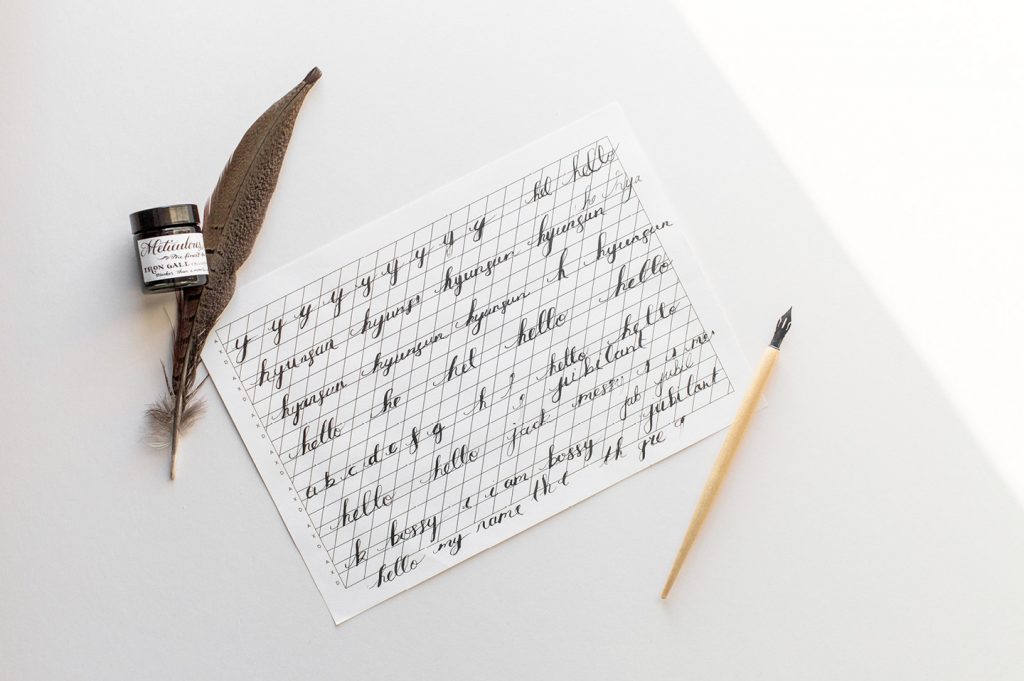 Meticulous
The finest
IRON GALL
y y y y y y y y hel hello
hyunsun hyuns hyunsun hyunsun
hyunsun hyunsun hyunsun h hyunsun
hello he hel hello hello
a b c d e f g h hello hello
hello hello jack jubilant
b bossy i i am bossy jub jubl
hello my name tht th jubilant